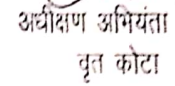 अधीक्षण अभियंता
वृत कोटा